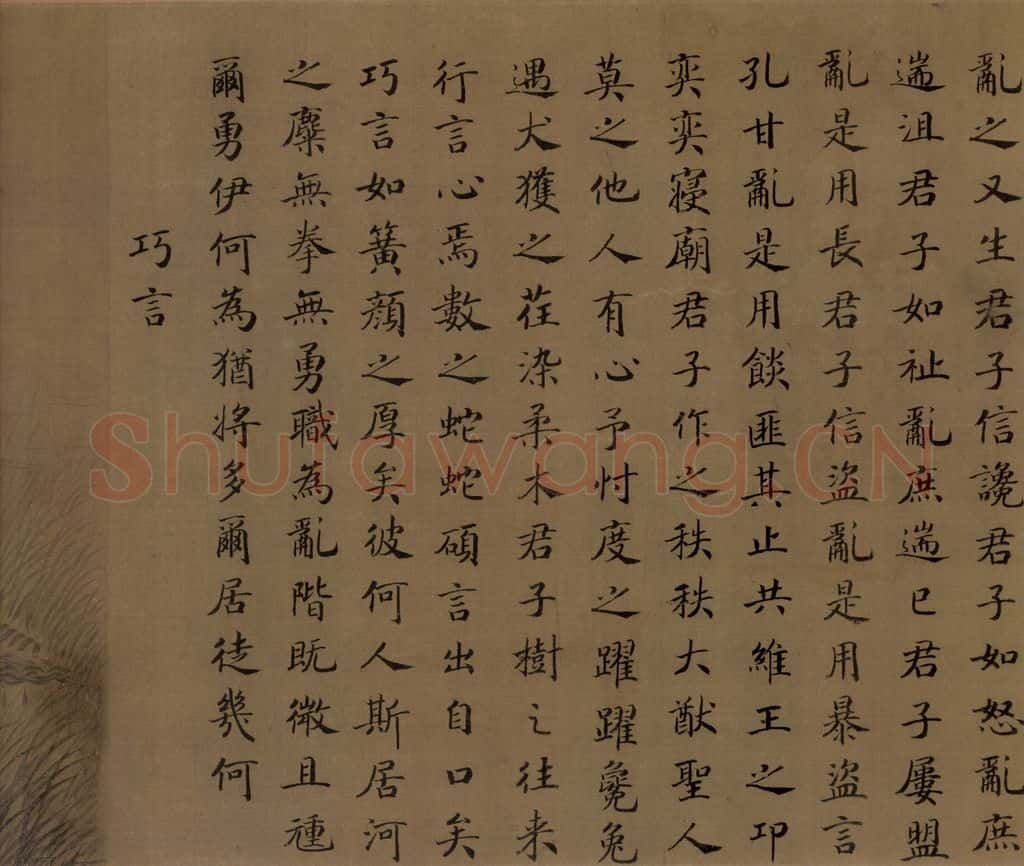 亂之又生君子信讒君子如怒亂庶
遄沮君子如祉亂庶遄已君子屢盟
亂是用長君子信盜亂是用暴盜言
孔甘亂是用餤匪其止共維王之卭
奕奕寢廟君子作之秩秩大猷聖人
莫之他人有心予忖度之躍躍毚兔
遇犬獲之荏染柔木君子樹之往来
行言心焉數之蛇蛇碩言出自口矣
巧言如簧顏之厚矣彼何人斯居河
之麋無拳無勇職為亂階既微且種
爾勇伊何為猶將多爾居徒幾何
巧言
Shufawang.CN